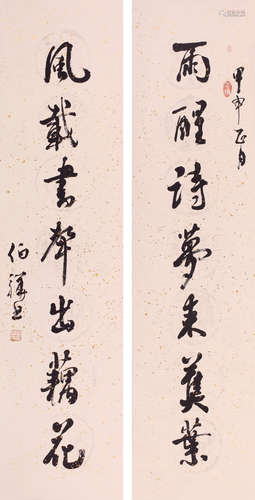 甲申正月
雨醒詩夢來蕉葉
風載書聲出藕花
伯